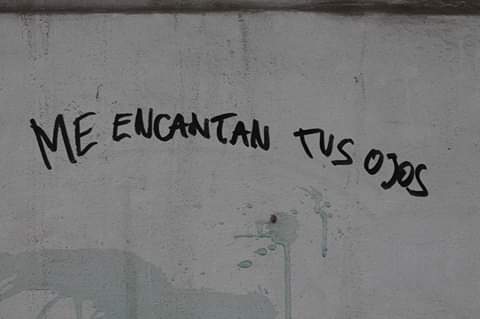 ME ENCANTAN TUS OJOS